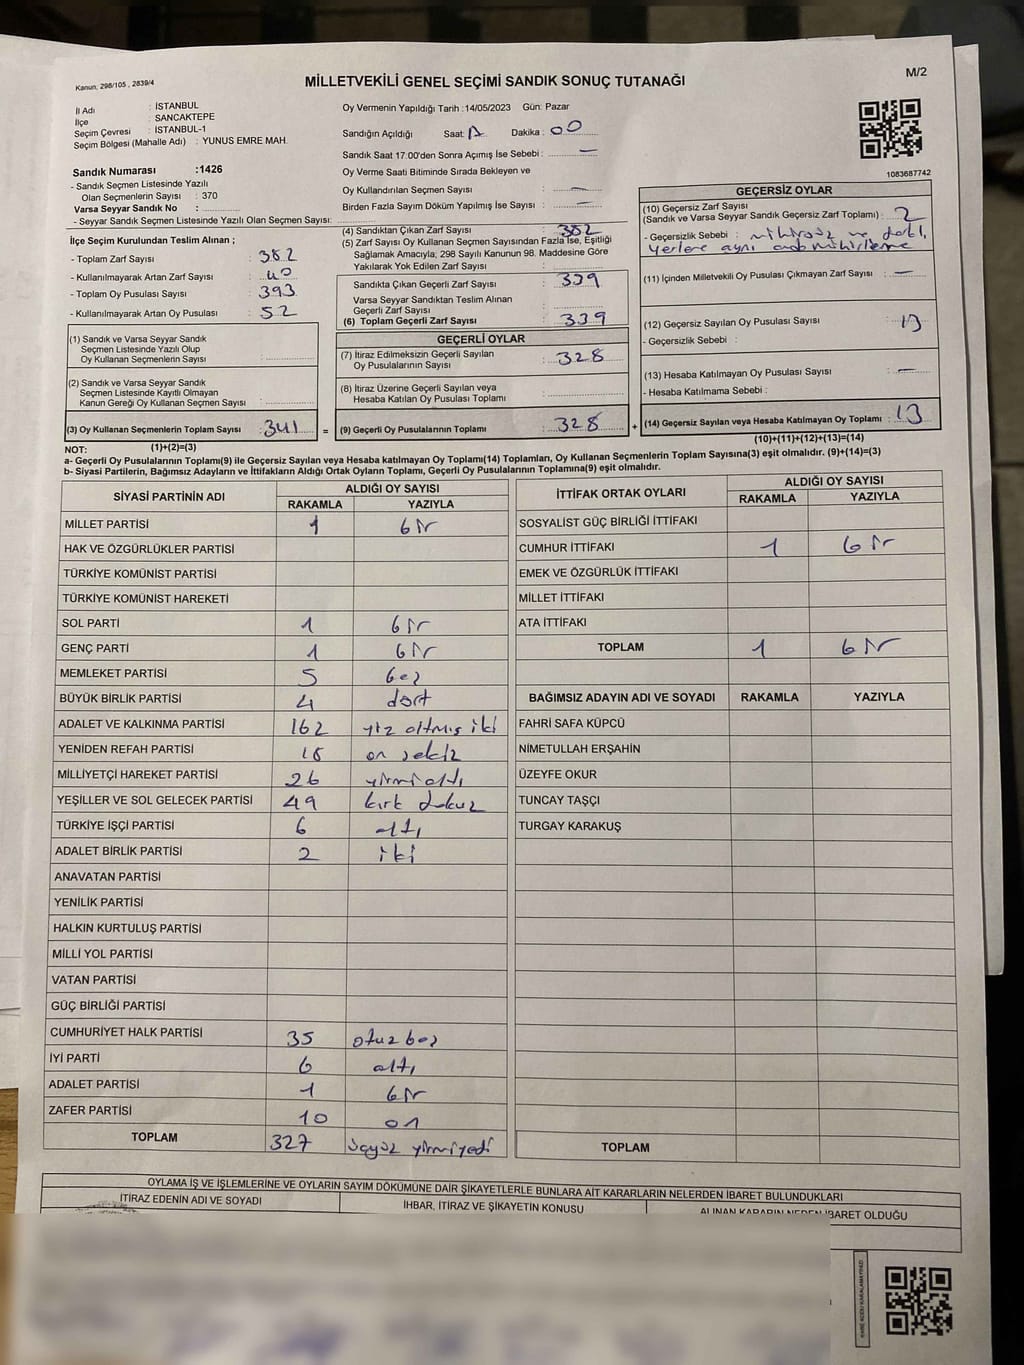 Kanun, 298/105 , 2839/4
MİLLETVEKİLİ GENEL SEÇİMİ SANDIK SONUÇ TUTANAĞI
M/2
İl Adı : İSTANBUL
İlçe : SANCAKTEPE
Seçim Çevresi : İSTANBUL-1
Seçim Bölgesi (Mahalle Adı) : YUNUS EMRE MAH.
Oy Vermenin Yapıldığı Tarih :14/05/2023 Gün: Pazar
Sandığın Açıldığı Saat: Dakika : 00
Sandık Saat 17:00'den Sonra Açımış İse Sebebi : —
Oy Verme Saati Bitiminde Sırada Bekleyen ve
Oy Kullandırılan Seçmen Sayısı : —
Birden Fazla Sayım Döküm Yapılmış İse Sayısı : —
1083687742
Sandık Numarası :1426
- Sandık Seçmen Listesinde Yazılı
Olan Seçmenlerin Sayısı : 370
Varsa Seyyar Sandık No :
- Seyyar Sandık Seçmen Listesinde Yazılı Olan Seçmen Sayısı:
İlçe Seçim Kurulundan Teslim Alınan ;
- Toplam Zarf Sayısı : 382
- Kullanılmayarak Artan Zarf Sayısı : 40
- Toplam Oy Pusulası Sayısı : 393
- Kullanılmayarak Artan Oy Pusulası : 52
(1) Sandık ve Varsa Seyyar Sandık
Seçmen Listesinde Yazılı Olup
Oy Kullanan Seçmenlerin Sayısı :
(2) Sandık ve Varsa Seyyar Sandık
Seçmen Listesinde Kayıtlı Olmayan
Kanun Gereği Oy Kullanan Seçmen Sayısı :
(3) Oy Kullanan Seçmenlerin Toplam Sayısı : 341
(1)+(2)=(3)
(4) Sandıktan Çıkan Zarf Sayısı : 382
(5) Zarf Sayısı Oy Kullanan Seçmen Sayısından Fazla İse, Eşitliği
Sağlamak Amacıyla; 298 Sayılı Kanunun 98. Maddesine Göre
Yakılarak Yok Edilen Zarf Sayısı :
Sandıkta Çıkan Geçerli Zarf Sayısı : 339
Varsa Seyyar Sandıktan Teslim Alınan
Geçerli Zarf Sayısı :
(6) Toplam Geçerli Zarf Sayısı : 339
GEÇERLİ OYLAR
(7) İtiraz Edilmeksizin Geçerli Sayılan
Oy Pusulalarının Sayısı : 328
(8) İtiraz Üzerine Geçerli Sayılan veya
Hesaba Katılan Oy Pusulası Toplamı :
= (9) Geçerli Oy Pusulalarının Toplamı : 328
GEÇERSİZ OYLAR
(10) Geçersiz Zarf Sayısı
(Sandık ve Varsa Seyyar Sandık Geçersiz Zarf Toplamı) : 2
- Geçersizlik Sebebi : mühürsüz ve
yerlere aynı mühürleme
(11) İçinden Milletvekili Oy Pusulası Çıkmayan Zarf Sayısı : —
(12) Geçersiz Sayılan Oy Pusulası Sayısı :
- Geçersizlik Sebebi :
(13) Hesaba Katılmayan Oy Pusulası Sayısı : —
- Hesaba Katılmama Sebebi :
+ (14) Geçersiz Sayılan veya Hesaba Katılmayan Oy Toplamı : 13
(10)+(11)+(12)+(13)=(14)
NOT:
a- Geçerli Oy Pusulalarının Toplamı(9) ile Geçersiz Sayılan veya Hesaba Katılmayan Oy Toplamı(14) Toplamları, Oy Kullanan Seçmenlerin Toplam Sayısına(3) eşit olmalıdır. (9)+(14)=(3)
b- Siyasi Partilerin, Bağımsız Adayların ve İttifakların Aldığı Ortak Oyların Toplamı, Geçerli Oy Pusulalarının Toplamına(9) eşit olmalıdır.
SİYASİ PARTİNİN ADI ALDIĞI OY SAYISI
RAKAMLA YAZIYLA
MİLLET PARTİSİ 1 bir
HAK VE ÖZGÜRLÜKLER PARTİSİ
TÜRKİYE KOMÜNİST PARTİSİ
TÜRKİYE KOMÜNİST HAREKETİ
SOL PARTİ 1 bir
GENÇ PARTİ 1 bir
MEMLEKET PARTİSİ 5 beş
BÜYÜK BİRLİK PARTİSİ 4 dört
ADALET VE KALKINMA PARTİSİ 162 yüz altmış iki
YENİDEN REFAH PARTİSİ 18 on sekiz
MİLLİYETÇİ HAREKET PARTİSİ 26 yirmi altı
YEŞİLLER VE SOL GELECEK PARTİSİ 49 kırk dokuz
TÜRKİYE İŞÇİ PARTİSİ 6 altı
ADALET BİRLİK PARTİSİ 2 iki
ANAVATAN PARTİSİ
YENİLİK PARTİSİ
HALKIN KURTULUŞ PARTİSİ
MİLLİ YOL PARTİSİ
VATAN PARTİSİ
GÜÇ BİRLİĞİ PARTİSİ
CUMHURİYET HALK PARTİSİ 35 otuz beş
İYİ PARTİ 6 altı
ADALET PARTİSİ 1 bir
ZAFER PARTİSİ 10 on
TOPLAM 327 üçyüz yirmiyedi
İTTİFAK ORTAK OYLARI ALDIĞI OY SAYISI
RAKAMLA YAZIYLA
SOSYALİST GÜÇ BİRLİĞİ İTTİFAKI
CUMHUR İTTİFAKI 1 bir
EMEK VE ÖZGÜRLÜK İTTİFAKI
MİLLET İTTİFAKI
ATA İTTİFAKI
TOPLAM 1 bir
BAĞIMSIZ ADAYIN ADI VE SOYADI RAKAMLA YAZIYLA
FAHRİ SAFA KÜPCÜ
NİMETULLAH ERŞAHİN
ÜZEYFE OKUR
TUNCAY TAŞÇI
TURGAY KARAKUŞ
TOPLAM
OYLAMA İŞ VE İŞLEMLERİNE VE OYLARIN SAYIM DÖKÜMÜNE DAİR ŞİKAYETLERLE BUNLARA AİT KARARLARIN NELERDEN İBARET BULUNDUKLARI
İTİRAZ EDENİN ADI VE SOYADI İHBAR, İTİRAZ VE ŞİKAYETİN KONUSU ALINAN KARARIN NEDEN İBARET OLDUĞU